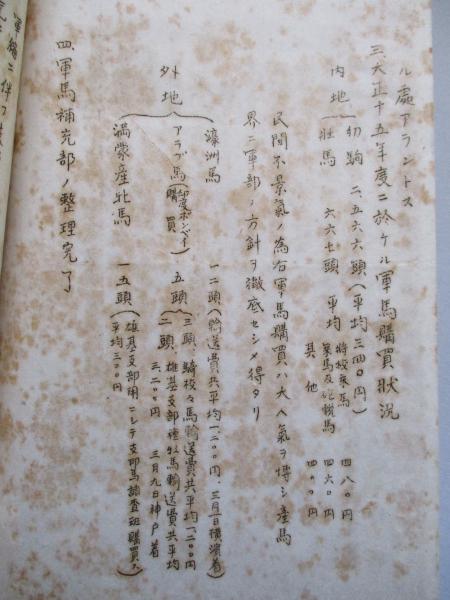 ル處アラントス
三、大正十五年度ニ於ケル軍馬購買狀況
內地
幼駒 二、五六六頭(平均三四〇円)
壯馬 六六七頭 平均
將校乘馬 四八〇円
輓馬及砲輓馬 四六〇円
其他 四〇〇円
民間不景氣ノ為右軍馬購買ハ大ヘ氣ヲ博シ產馬
界ニ軍部ノ方針ヲ徹底セシメ得タリ
外地
濠洲馬 一二頭(輸送費共平均一、二〇〇円、三月一日橫濱着)
アラブ馬(印度ボンベイ購買) 五頭
三頭、騎校々馬輸送費共平均一、二〇〇円
二頭、雄基支部種牡馬輸送費共平均
三、二〇〇円 三月九日神戶着
滿蒙產牝馬 一五頭
雄基支部用ニシテ支那馬調查班購買ス
平均三〇〇円
四、軍馬補充部ノ整理完了